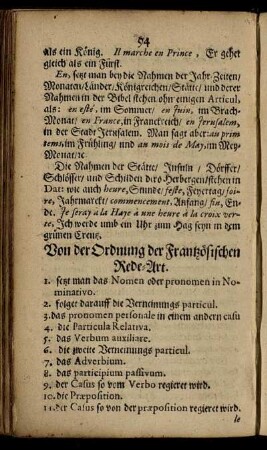 54
als ein König. Il marche en Prince, Er gehet
gleich als ein Fürst.
En, setzt man bey die Nahmen der Jahr-Zeiten/
Monaten/Länder/Königreichen/Stätte/ und derer
Nahmen in der Bibel stehen ohn einigen Articul,
als: en esté, im Sommer/ en Juin, im Brach-
Monat/ en France, in Franckreich/ en Jerusalem,
in der Stadt Jerusalem. Man sagt aber: au prin
tems, im Frühling/ und au mois de May, im Mey-
Monat/ ꝛc.
Die Nahmen der Stätte/ Insuln/ Dörffer/
Schlösser/ und Schilden diro Herbergen/stehen in
Dat: wie auch heure, Stunde/ feste, Feyertag/ foi-
re, Jahrmarckt/ commencement, Anfang/ fin, En-
de. Je seray a la Haye à une heure à la croix ver-
te, Ich werde umb ein Uhr zum Hag seyn in dem
grünen Creutz.
Von der Ordnung der Frantzösischen
Rede-Art.
1. setzt man das Nomen oder pronomen in No-
minativo.
2. folget darauff die Verneinungs particul.
3. das pronomen personale in einem andern casu
4. die Particula Relativa.
5. das Verbum auxiliare.
6. die zweite Verneinungs particul.
7. das Adverbium.
8. das participium passivum.
9. der Casus so vom Verbo regieret wird.
10. die Præposition.
11. der Casus so von der præposition regieret wird.
le